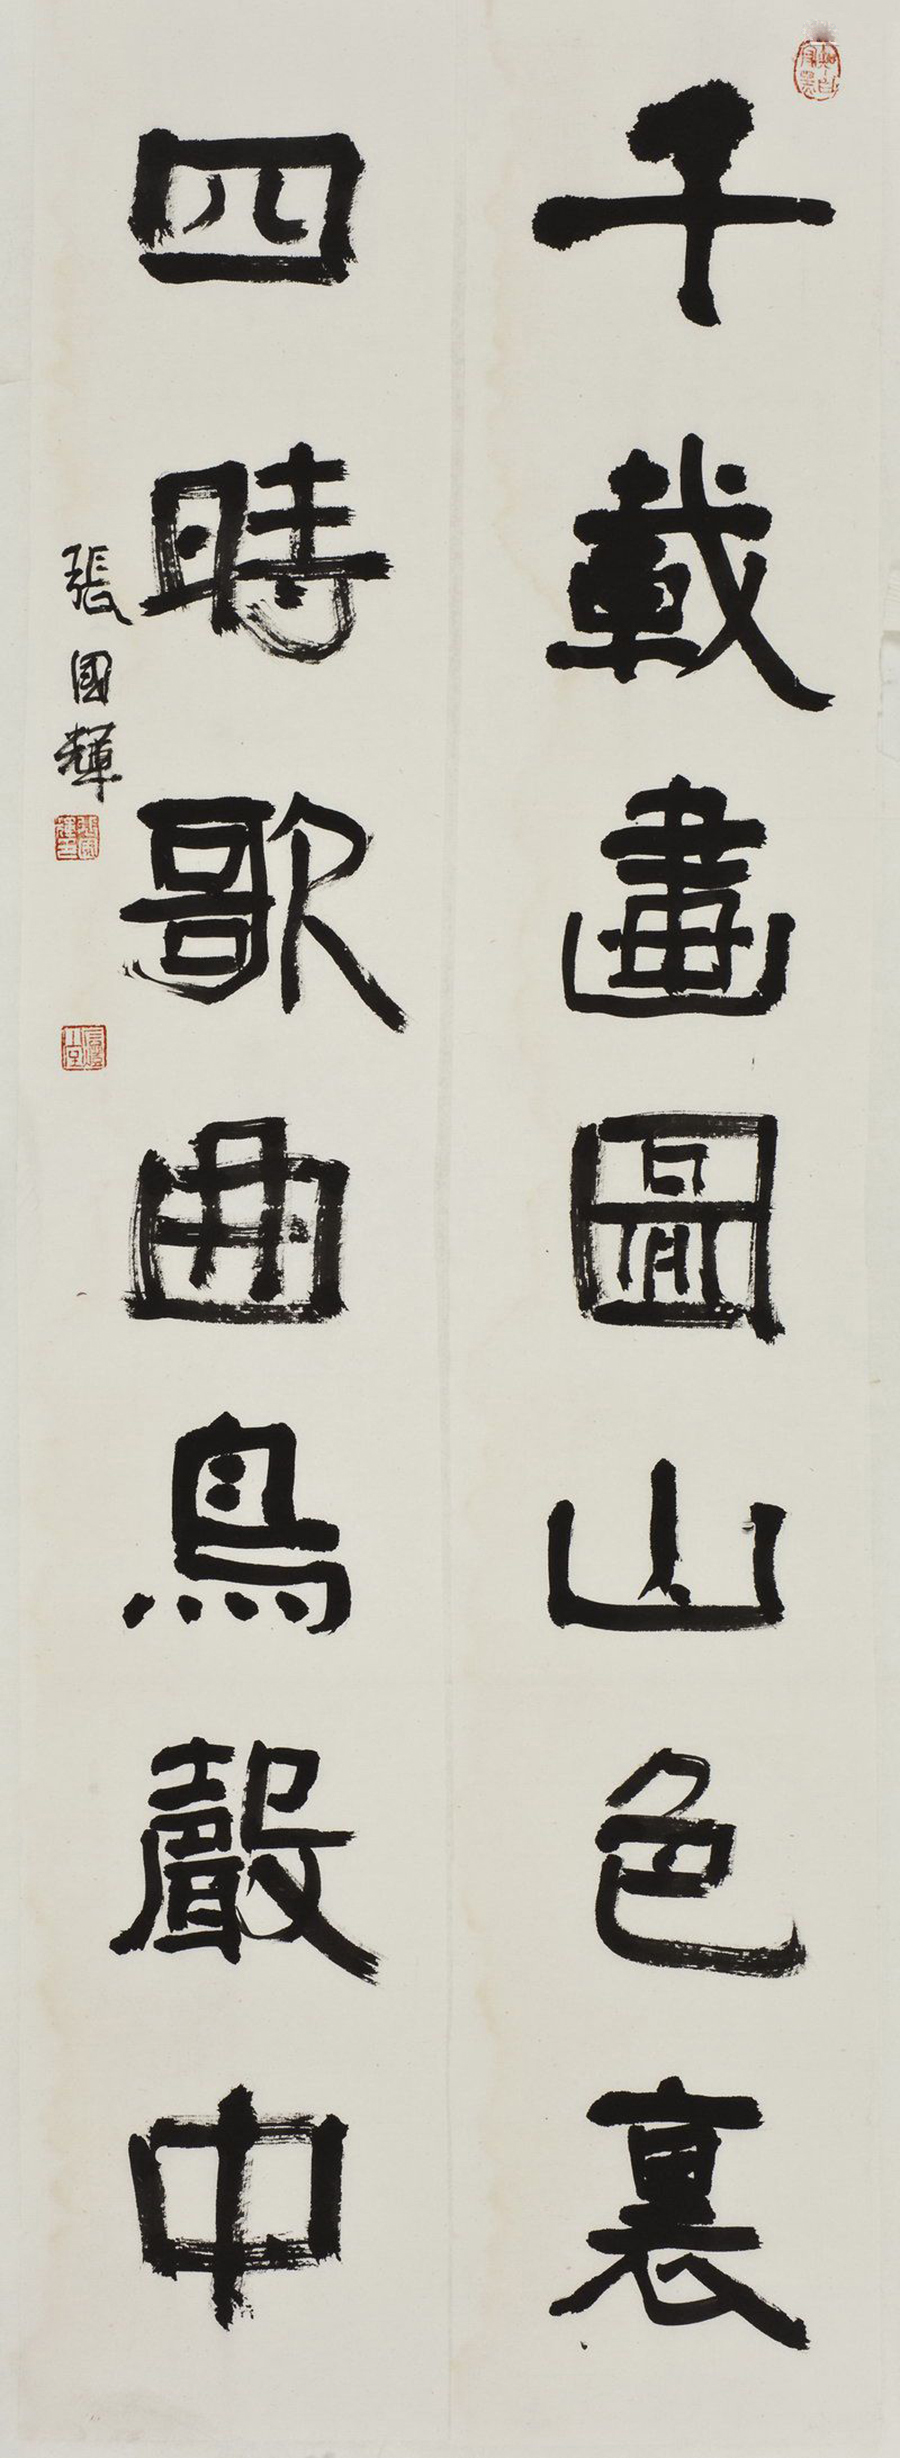 千載畫圖山色裏
四時歌曲鳥聲中
張國輝